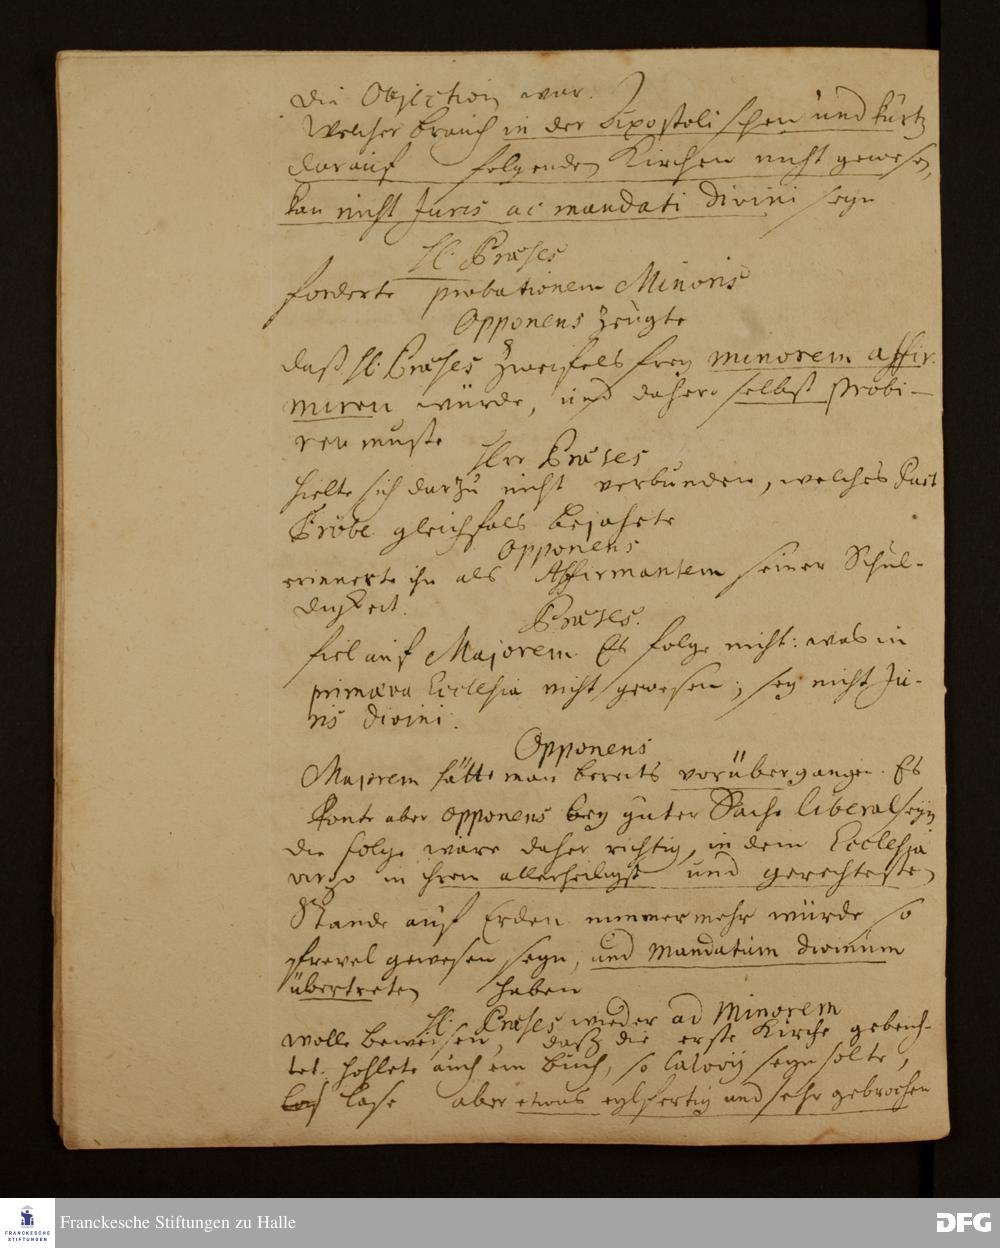 Die Objection war.
Welcher Brauch in der Apostolischen und kurtz
darauf folgenden Kirchen nicht gewesen,
kan nicht Juris ac mandati Divini seyn
H. Præses
forderte probationem Minoris
Opponens zeugte
daß H. Præses Zweifels frey minorem affir-
miren würde, und daher selbst probi-
ren muste
Herr Præses
hielte sich darzu nicht verbunden, welches Past
gleichfals bejahete
Opponens
erinnerte ihn als Affirmantem seiner Schul-
digkeit.
Præses.
fiel auf Majorem. Es folge nicht: was in
primæva Ecclesia nicht gewesen; sey nicht Ju-
ris divini.
Opponens
Majorem hätte man bereits vorübergangen. Es
konte aber opponens bey guter Sache liberal seyn
die folge wäre daher richtig, in dem Ecclesia
virgo in ihrem allerheiligst und gerechtesten
Stande auf Erden nimmermehr würde so
frevel gewesen seyn, und mandatum divinum
übertreten haben
H. Præses wieder ad Minorem
wolle beweisen, daß die erste Kirche gebeich-
tet. hohlete auch ein Buch, so Calovij seyn solte,
lase aber etwas eylfertig und sehr gebrochen
Franckesche Stiftungen zu Halle
FRANCKESCHE
STIFTUNGEN
DFG